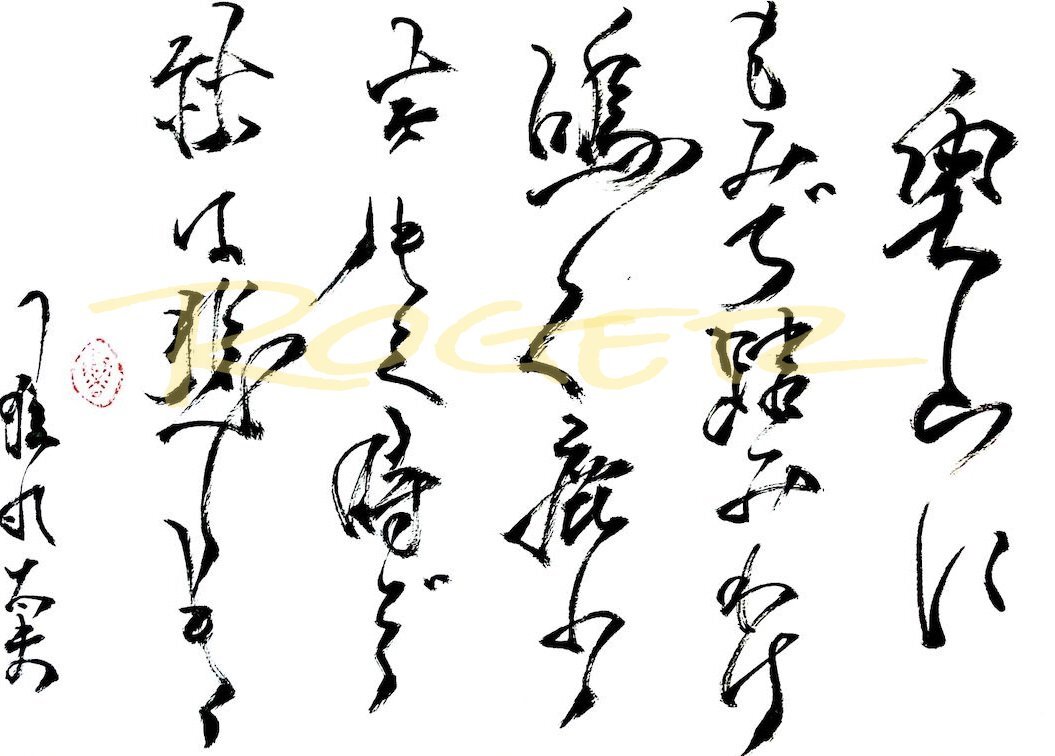 奥山に
もみぢ踏みわけ
鳴く鹿の
声きく時ぞ
秋は悲しき
ROGER